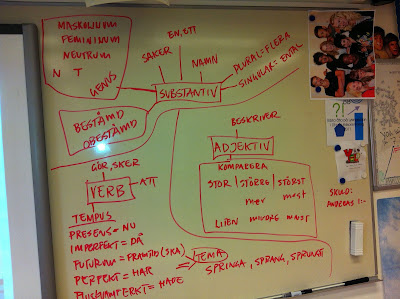 MASKULINUM
FEMININUM
NEUTRUM
N T
GENUS
SAKER
EN, ETT
NAMN
PLURAL = FLERA
SINGULAR = ENTAL
SUBSTANTIV
BESTÄMD
OBESTÄMD
GÖR, SKER
VERB
ATT
TEMPUS
PRESENS = NU
IMPERFEKT = DÅ
FUTURUM = FRAMTID (SKA)
PERFEKT = HAR
PLUSKVAMPERFEKT = HADE
TEMA
SPRINGA, SPRANG, SPRUNGIT
BESKRIVER
ADJEKTIV
KOMPARERA
STOR STÖRRE STÖRST
mer mest
LITEN MINDRE MINST
SKULD:
ANDREAS 1:-